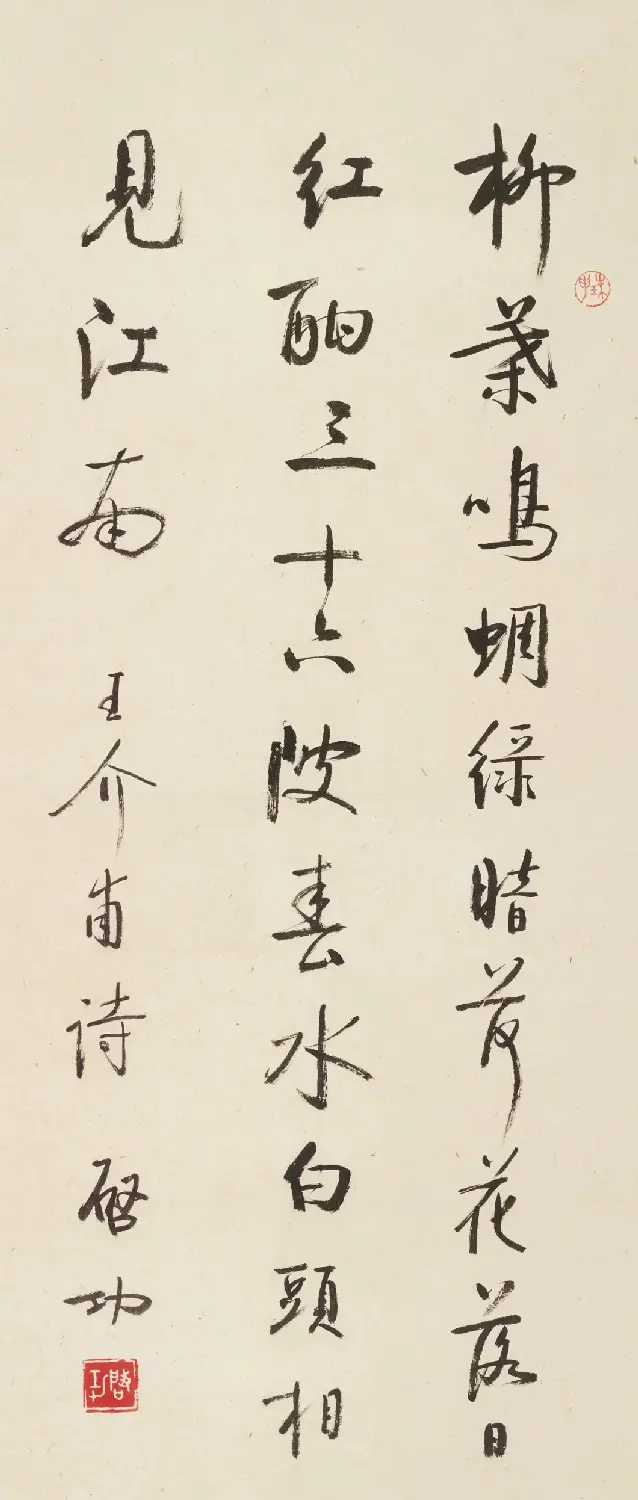 柳葉鳴蜩綠暗荷花落日
紅酣三十六陂春水白頭相
見江南 王介甫詩 啓功
珠申
啓功